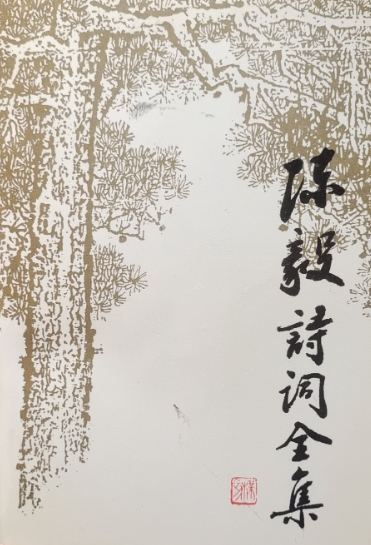 陈毅詩词全集